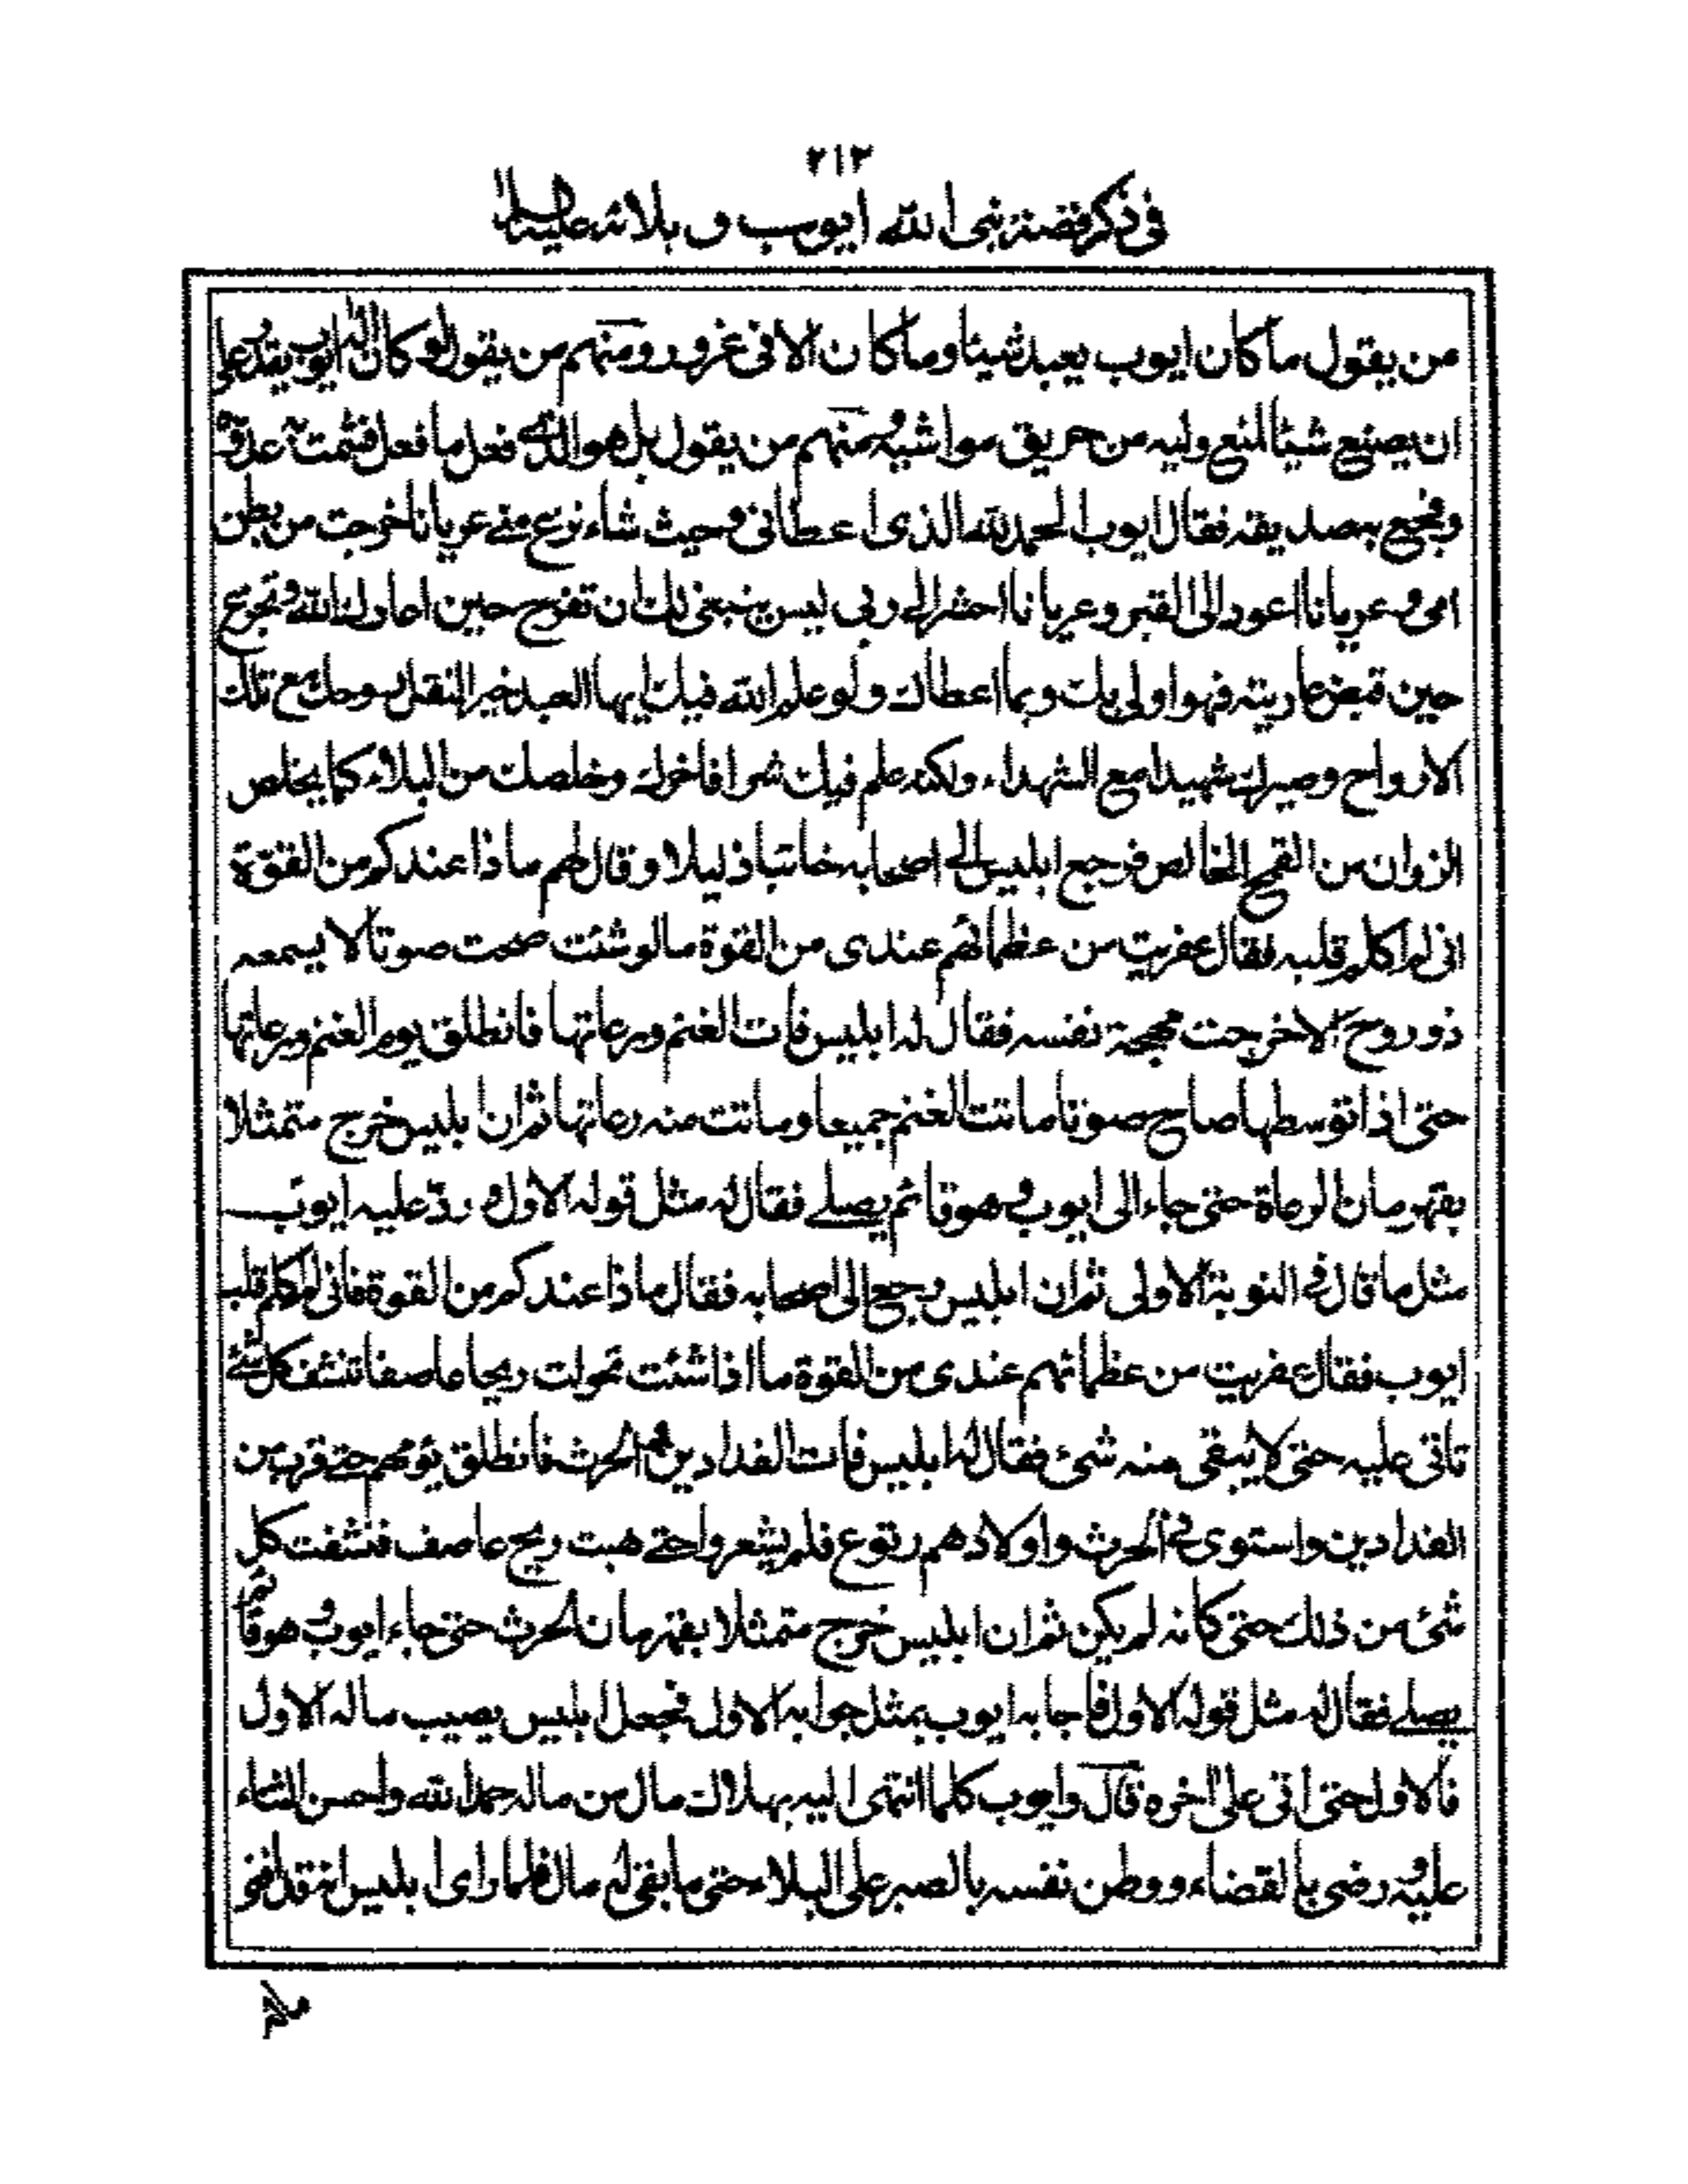 ٢١٣
في ذكر قصة نبي الله ايوب و بلائه عليه السلام
من يقول ما كان ايوب يعبد شيئا وما كان الا في غرور ومنهم من يقول لو كان اله ايوب يقدر على
ان يصنع شيئا لمنع وليه من حريق مواشيه ومنهم من يقول بل هو الذي فعل ما فعل فشمت به عدوه
وفجع به صديقه فقال ايوب الحمد لله الذي اعطاني وحيث شاء نزع مني عريانا خرجت من بطن
امي وعريانا اعود الى القبر وعريانا احشر الى ربي ليس ينبغي لك ان تفرح حين اعارك الله وتجزع
حين قبض عاريته فهو اولى بك وبما اعطاك ولو علم الله فيك ايها العبد خيرا لنقل روحك مع تلك
الارواح وصيرك شهيدا مع الشهداء ولكنه علم فيك شرا فاخرك وخلصك من البلاء كما يخلص
الزوان من القمح الخالص فرجع ابليس الى اصحابه خائبا ذليلا وقال لهم ماذا عندكم من القوة
اني لم اكلم قلبه فقال عفريت من عظمائهم عندي من القوة ما لو شئت صحت صوتا لا يسمعه
ذو روح الا خرجت مهجة نفسه فقال له ابليس فات الغنم ورعاتها فانطلق يوم الغنم ورعاتها
حتى اذا توسطها صاح صوتا ماتت الغنم جميعا وماتت منه رعاتها ثم ان ابليس خرج متمثلا
بقهرمان الرعاة حتى جاء الى ايوب وهو قائم يصلي فقال له مثل قوله الاول ورد عليه ايوب
مثل ما قال في النوبة الاولى ثم ان ابليس رجع الى اصحابه فقال ماذا عندكم من القوة فاني لم اكلم قلب
ايوب فقال عفريت من عظمائهم عندي من القوة ما اذا شئت تحولت ريحا عاصفا تنشف كل شئ
تاتي عليه حتى لا يبقى منه شئ فقال له ابليس فات الفدادين والحرث فانطلق يؤمهم حتى قرب من
الفدادين واستوى في الحرث واولادهم رتوع فلم يشعروا حتى هبت ريح عاصف فنشفت كل
شئ من ذلك حتى كانه لم يكن ثم ان ابليس خرج متمثلا بقهرمان الحرث حتى جاء ايوب وهو قائم
يصلي فقال له مثل قوله الاول فاجابه ايوب بمثل جوابه الاول فجعل ابليس يصيب ماله الاول
فالاول حتى اتى على اخره قال وايوب كلما انتهى اليه بهلاك مال من ماله حمد الله واحسن الثناء
عليه ورضي بالقضاء ووطن نفسه بالصبر على البلاء حتى ما بقي له مال فلما راى ابليس انه قد افنى